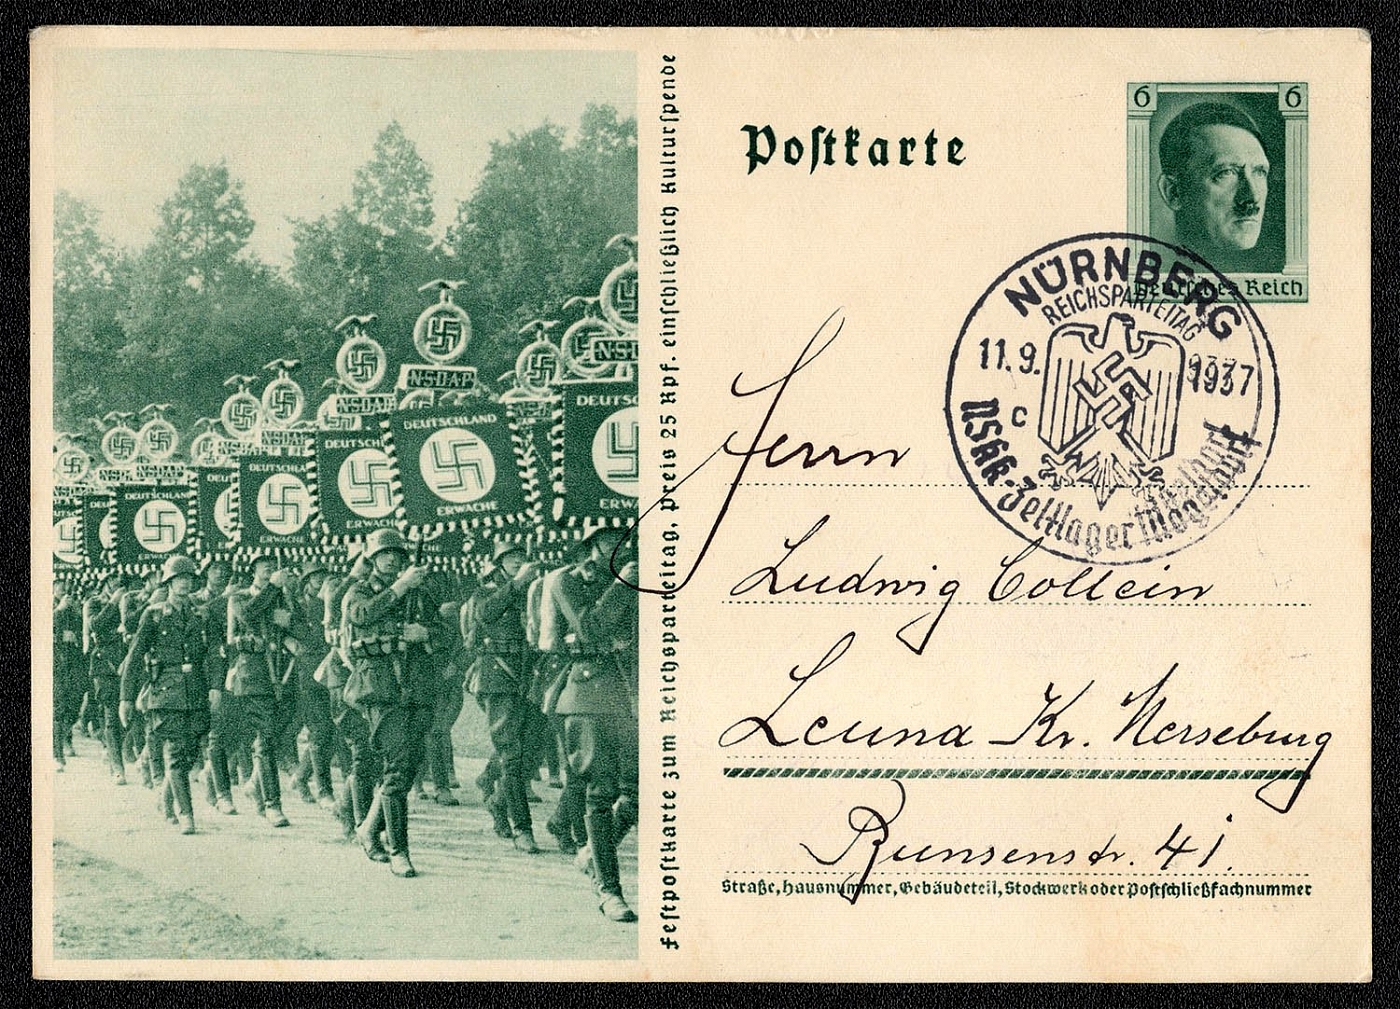 Postkarte
6 6
Deutsches Reich
NÜRNBERG
REICHSPARTEITAG
11.9. 1937
C
NSKK-Zeltlager Magerhof
Herrn
Ludwig Collein
Leuna Kr. Merseburg
Bunsenstr. 41.
Straße, Hausnummer, Gebäudeteil, Stockwerk oder Postschließfachnummer
Festpostkarte zum Reichsparteitag, Preis 25 Rpf. einschließlich Kulturspende
NSDAP
NSDAP
DEUTSCHLAND
ERWACHE
DEUTSCHLAND
ERWACHE